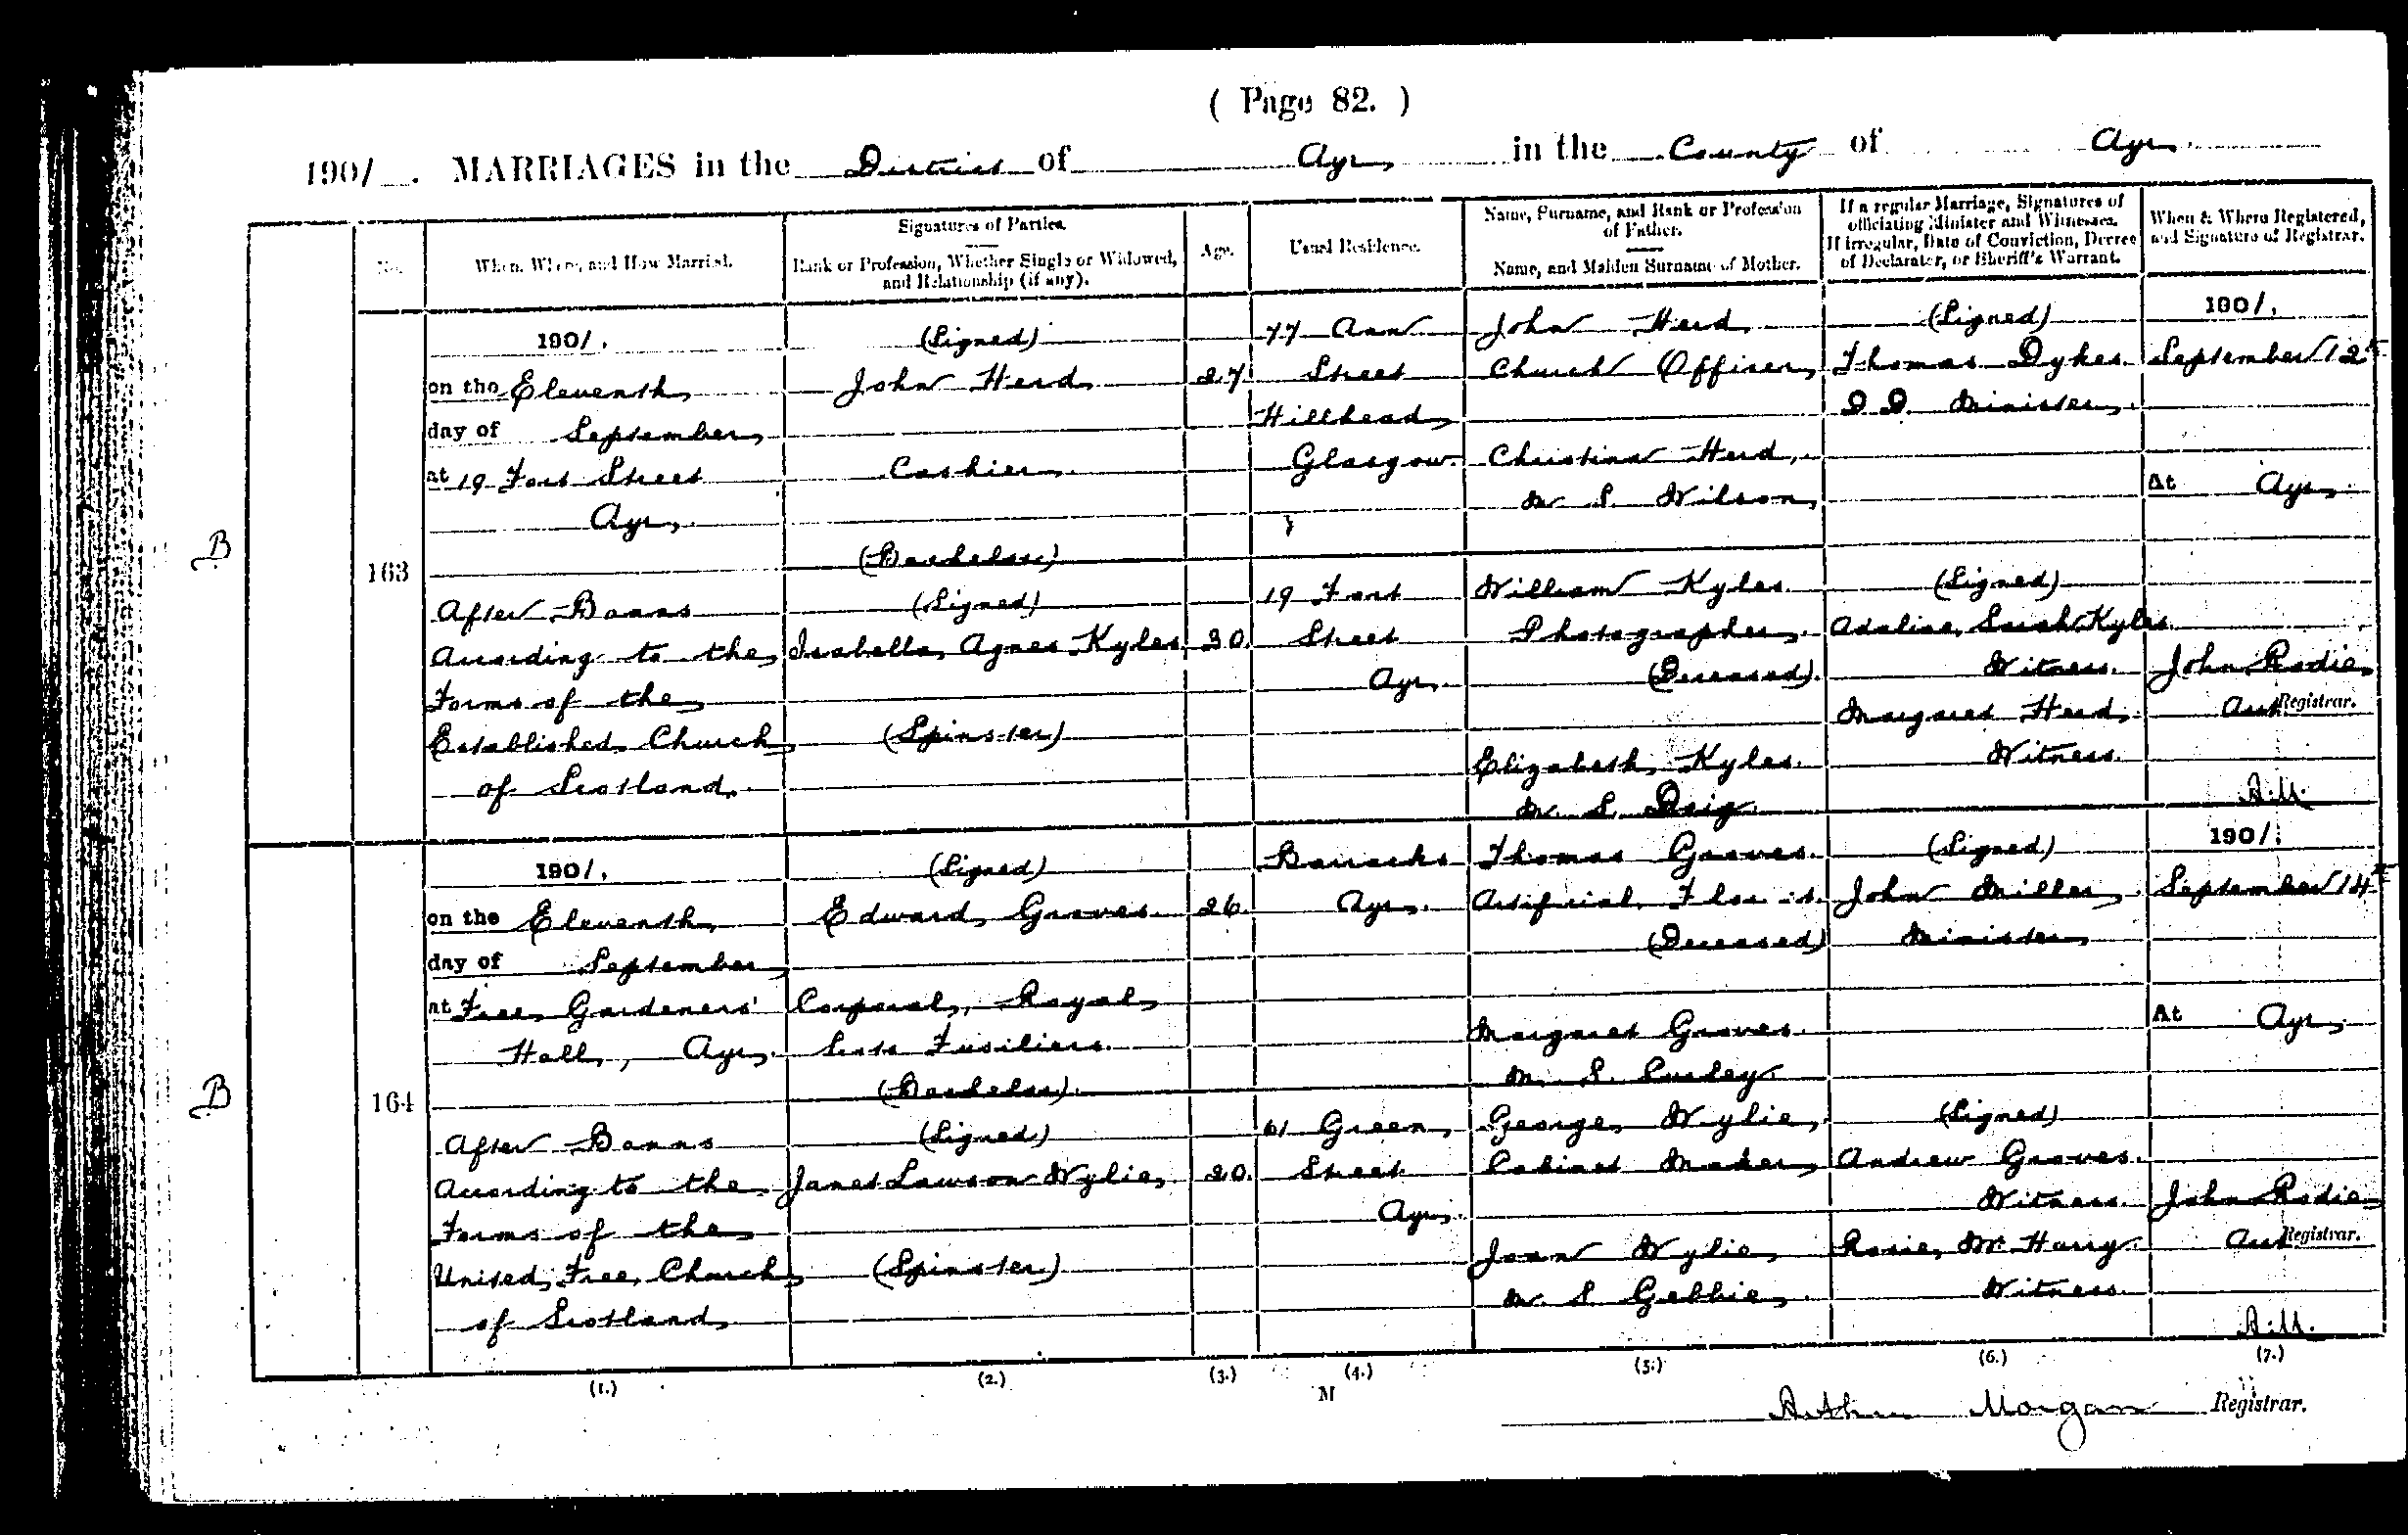 ( Page 82. )
1901. MARRIAGES in the District of Ayr in the County of Ayr
No.
When, Where, and How Married.
Signatures of Parties.
Rank or Profession, Whether Single or Widowed,
and Relationship (if any).
Age.
Usual Residence.
Name, Surname, and Rank or Profession
of Father.
Name, and Maiden Surname of Mother.
If a regular Marriage, Signatures of
officiating Minister and Witnesses.
If irregular, Date of Conviction, Decree
of Declarator, or Sheriff's Warrant.
When & Where Registered,
and Signature of Registrar.
B
163
1901.
on the Eleventh
day of September
at 19 Fort Street
Ayr
After Banns
According to the
Forms of the
Established Church
of Scotland.
(Signed)
John Herd
Cashier
(Bachelor)
(Signed)
Isabella Agnes Kyles
(Spinster)
27
30
77 Ann
Street
Hillhead
Glasgow.
19 Fort
Street
Ayr.
John Herd
Church Officer
Christina Herd
M. S. Wilson
William Kyles
Photographer
(Deceased).
Elizabeth Kyles.
M. S.
(Signed)
Thomas Dykes
D D Minister
(Signed)
Adaline Sarah Kyles
Witness.
Margaret Herd
Witness.
1901.
September 12th
At Ayr
John Rodie
Asst Registrar.
A.M.
B
164
1901.
on the Eleventh
day of September
at Free Gardeners'
Hall, Ayr.
After Banns
According to the
Forms of the
United Free Church
of Scotland
(Signed)
Edward Groves.
Corporal, Royal
Scots Fusiliers.
(Bachelor).
(Signed)
Janet Lawson Wylie
(Spinster)
26.
20.
Barracks
Ayr.
61 Green
Street
Ayr.
Thomas Groves.
Artificial Florist.
(Deceased)
Margaret Groves.
M. S.
George Wylie
Cabinet Maker
Joan Wylie
M. S. Gebbie
(Signed)
John Miller
Minister
(Signed)
Andrew Groves.
Witness.
Rosie McHarg
Witness.
1901.
September 14th
At Ayr
John Rodie
Asst Registrar.
A.M.
(1.) (2.) (3.) (4.) (5.) (6.) (7.)
M
Arthur Morgan Registrar.